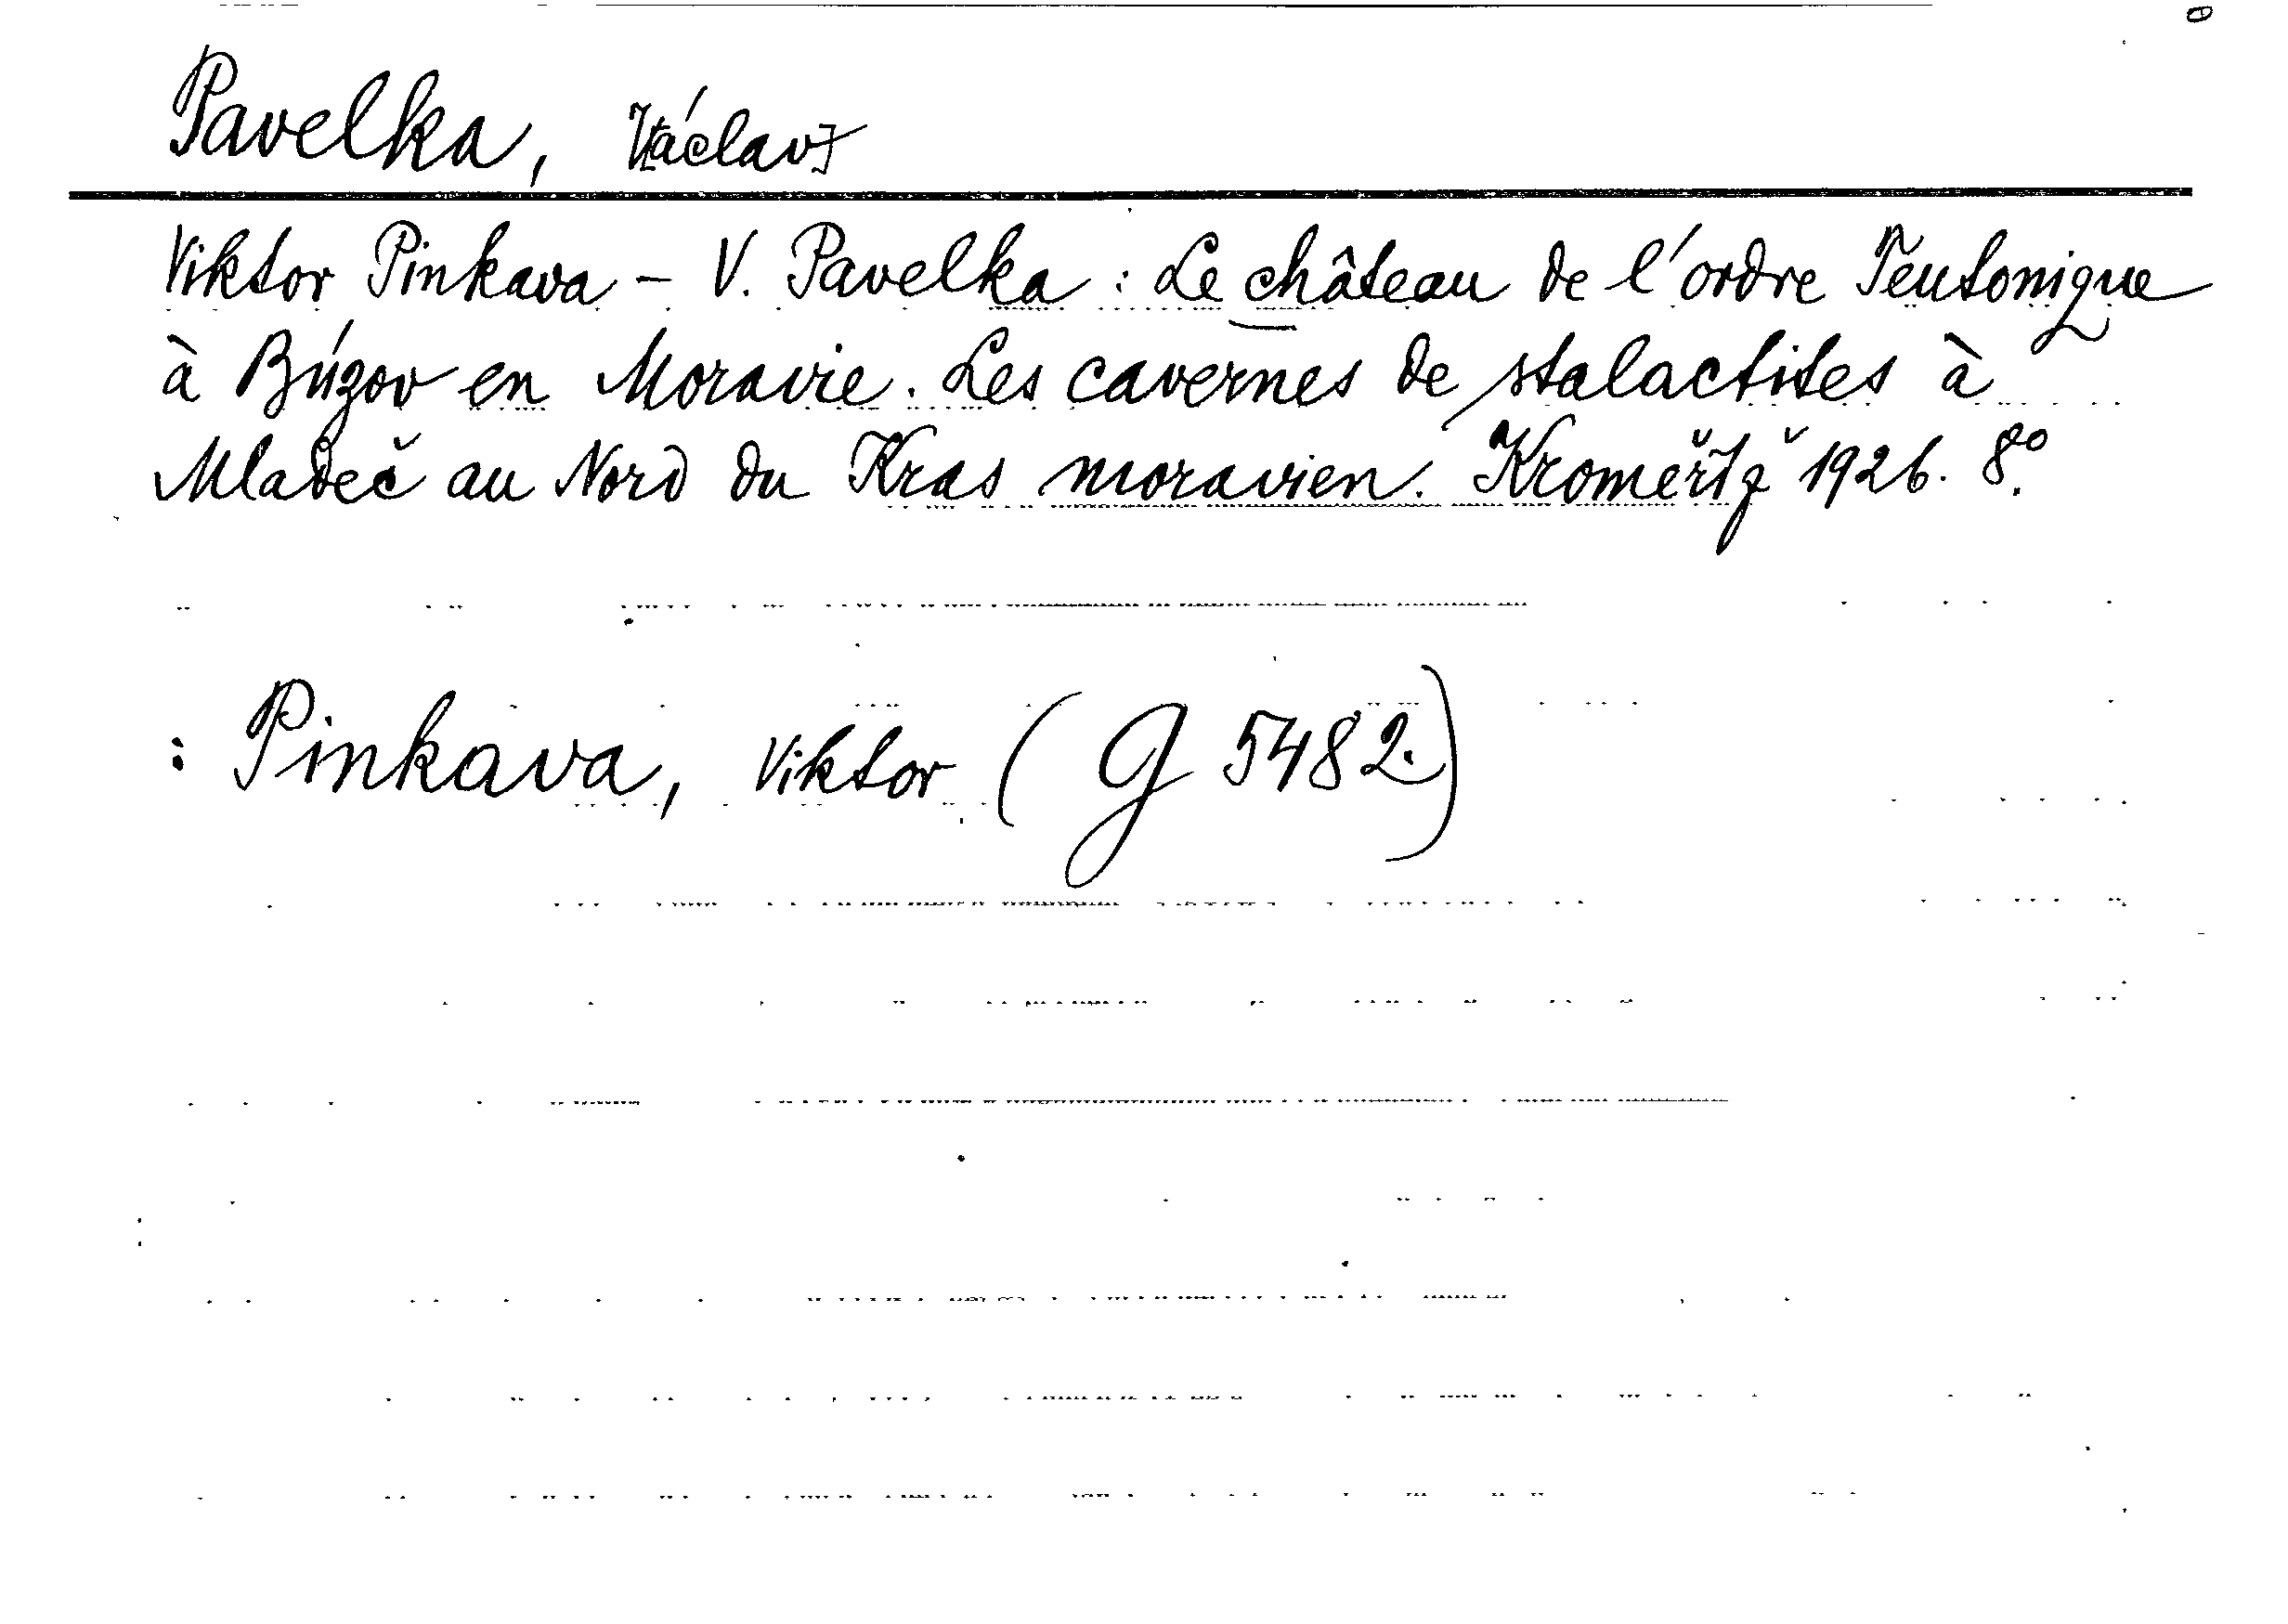 Pavelka, V[áclav]
Viktor Pinkava - V. Pavelka : Le château de l'ordre Teutonique
à Búzov en Moravie. Les cavernes de stalactites à
Mladeč au Nord du Kras moravien. Kromĕřĭž 1926. 8°.
: Pinkava, Viktor (G 5482.)